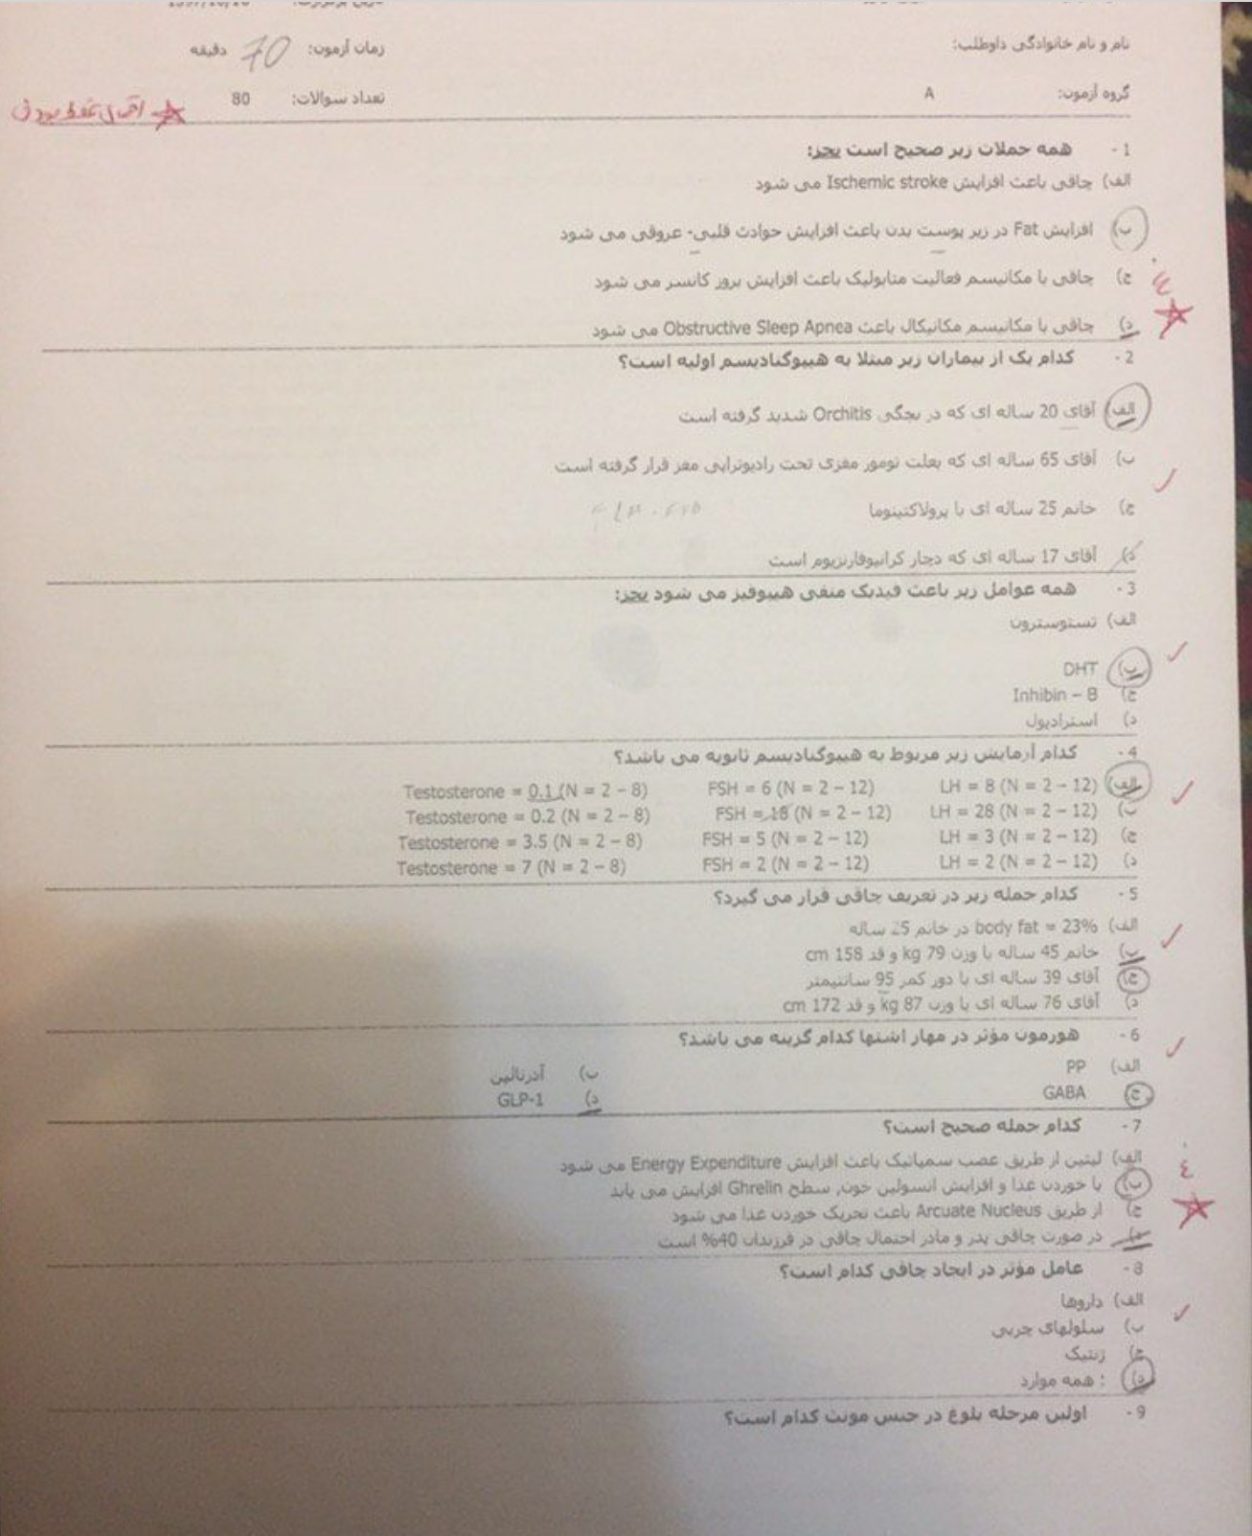 نام و نام خانوادگی داوطلب:
زمان آزمون: 70 دقیقه
گروه آزمون: A
تعداد سوالات: 80
1 - همه جملات زیر صحیح است بجز:
الف) چاقی باعث افزایش Ischemic stroke می شود
ب) افزایش Fat در زیر پوست بدن باعث افزایش حوادث قلبی- عروقی می شود
ج) چاقی با مکانیسم فعالیت متابولیک باعث افزایش بروز کانسر می شود
د) چاقی با مکانیسم مکانیکال باعث Obstructive Sleep Apnea می شود
2 - کدام یک از بیماران زیر مبتلا به هیپوگنادیسم اولیه است؟
الف) آقای 20 ساله ای که در بچگی Orchitis شدید گرفته است
ب) آقای 65 ساله ای که بعلت تومور مغزی تحت رادیوتراپی مغز قرار گرفته است
ج) خانم 25 ساله ای با پرولاکتینوما
د) آقای 17 ساله ای که دچار کرانیوفارنژیوم است
3 - همه عوامل زیر باعث فیدبک منفی هیپوفیز می شود بجز:
الف) تستوسترون
ب) DHT
ج) Inhibin – B
د) استرادیول
4 - کدام آزمایش زیر مربوط به هیپوگنادیسم ثانویه می باشد؟
الف) LH = 8 (N = 2 – 12) FSH = 6 (N = 2 – 12) Testosterone = 0.1 (N = 2 – 8)
ب) LH = 28 (N = 2 – 12) FSH = 18 (N = 2 – 12) Testosterone = 0.2 (N = 2 – 8)
ج) LH = 3 (N = 2 – 12) FSH = 5 (N = 2 – 12) Testosterone = 3.5 (N = 2 – 8)
د) LH = 2 (N = 2 – 12) FSH = 2 (N = 2 – 12) Testosterone = 7 (N = 2 – 8)
5 - کدام جمله زیر در تعریف چاقی قرار می گیرد؟
الف) body fat = 23% در خانم 25 ساله
ب) خانم 45 ساله با وزن 79 kg و قد 158 cm
ج) آقای 39 ساله ای با دور کمر 95 سانتیمتر
د) آقای 76 ساله ای با وزن 87 kg و قد 172 cm
6 - هورمون مؤثر در مهار اشتها کدام گزینه می باشد؟
الف) PP ب) آدرنالین
ج) GABA د) GLP-1
7 - کدام جمله صحیح است؟
الف) لپتین از طریق عصب سمپاتیک باعث افزایش Energy Expenditure می شود
ب) با خوردن غذا و افزایش انسولین خون، سطح Ghrelin افزایش می یابد
ج) از طریق Arcuate Nucleus باعث تحریک خوردن غذا می شود
د) در صورت چاقی پدر و مادر احتمال چاقی در فرزندان 40% است
8 - عامل مؤثر در ایجاد چاقی کدام است؟
الف) داروها
ب) سلولهای چربی
ج) ژنتیک
د) : همه موارد
9 - اولین مرحله بلوغ در جنس مونث کدام است؟